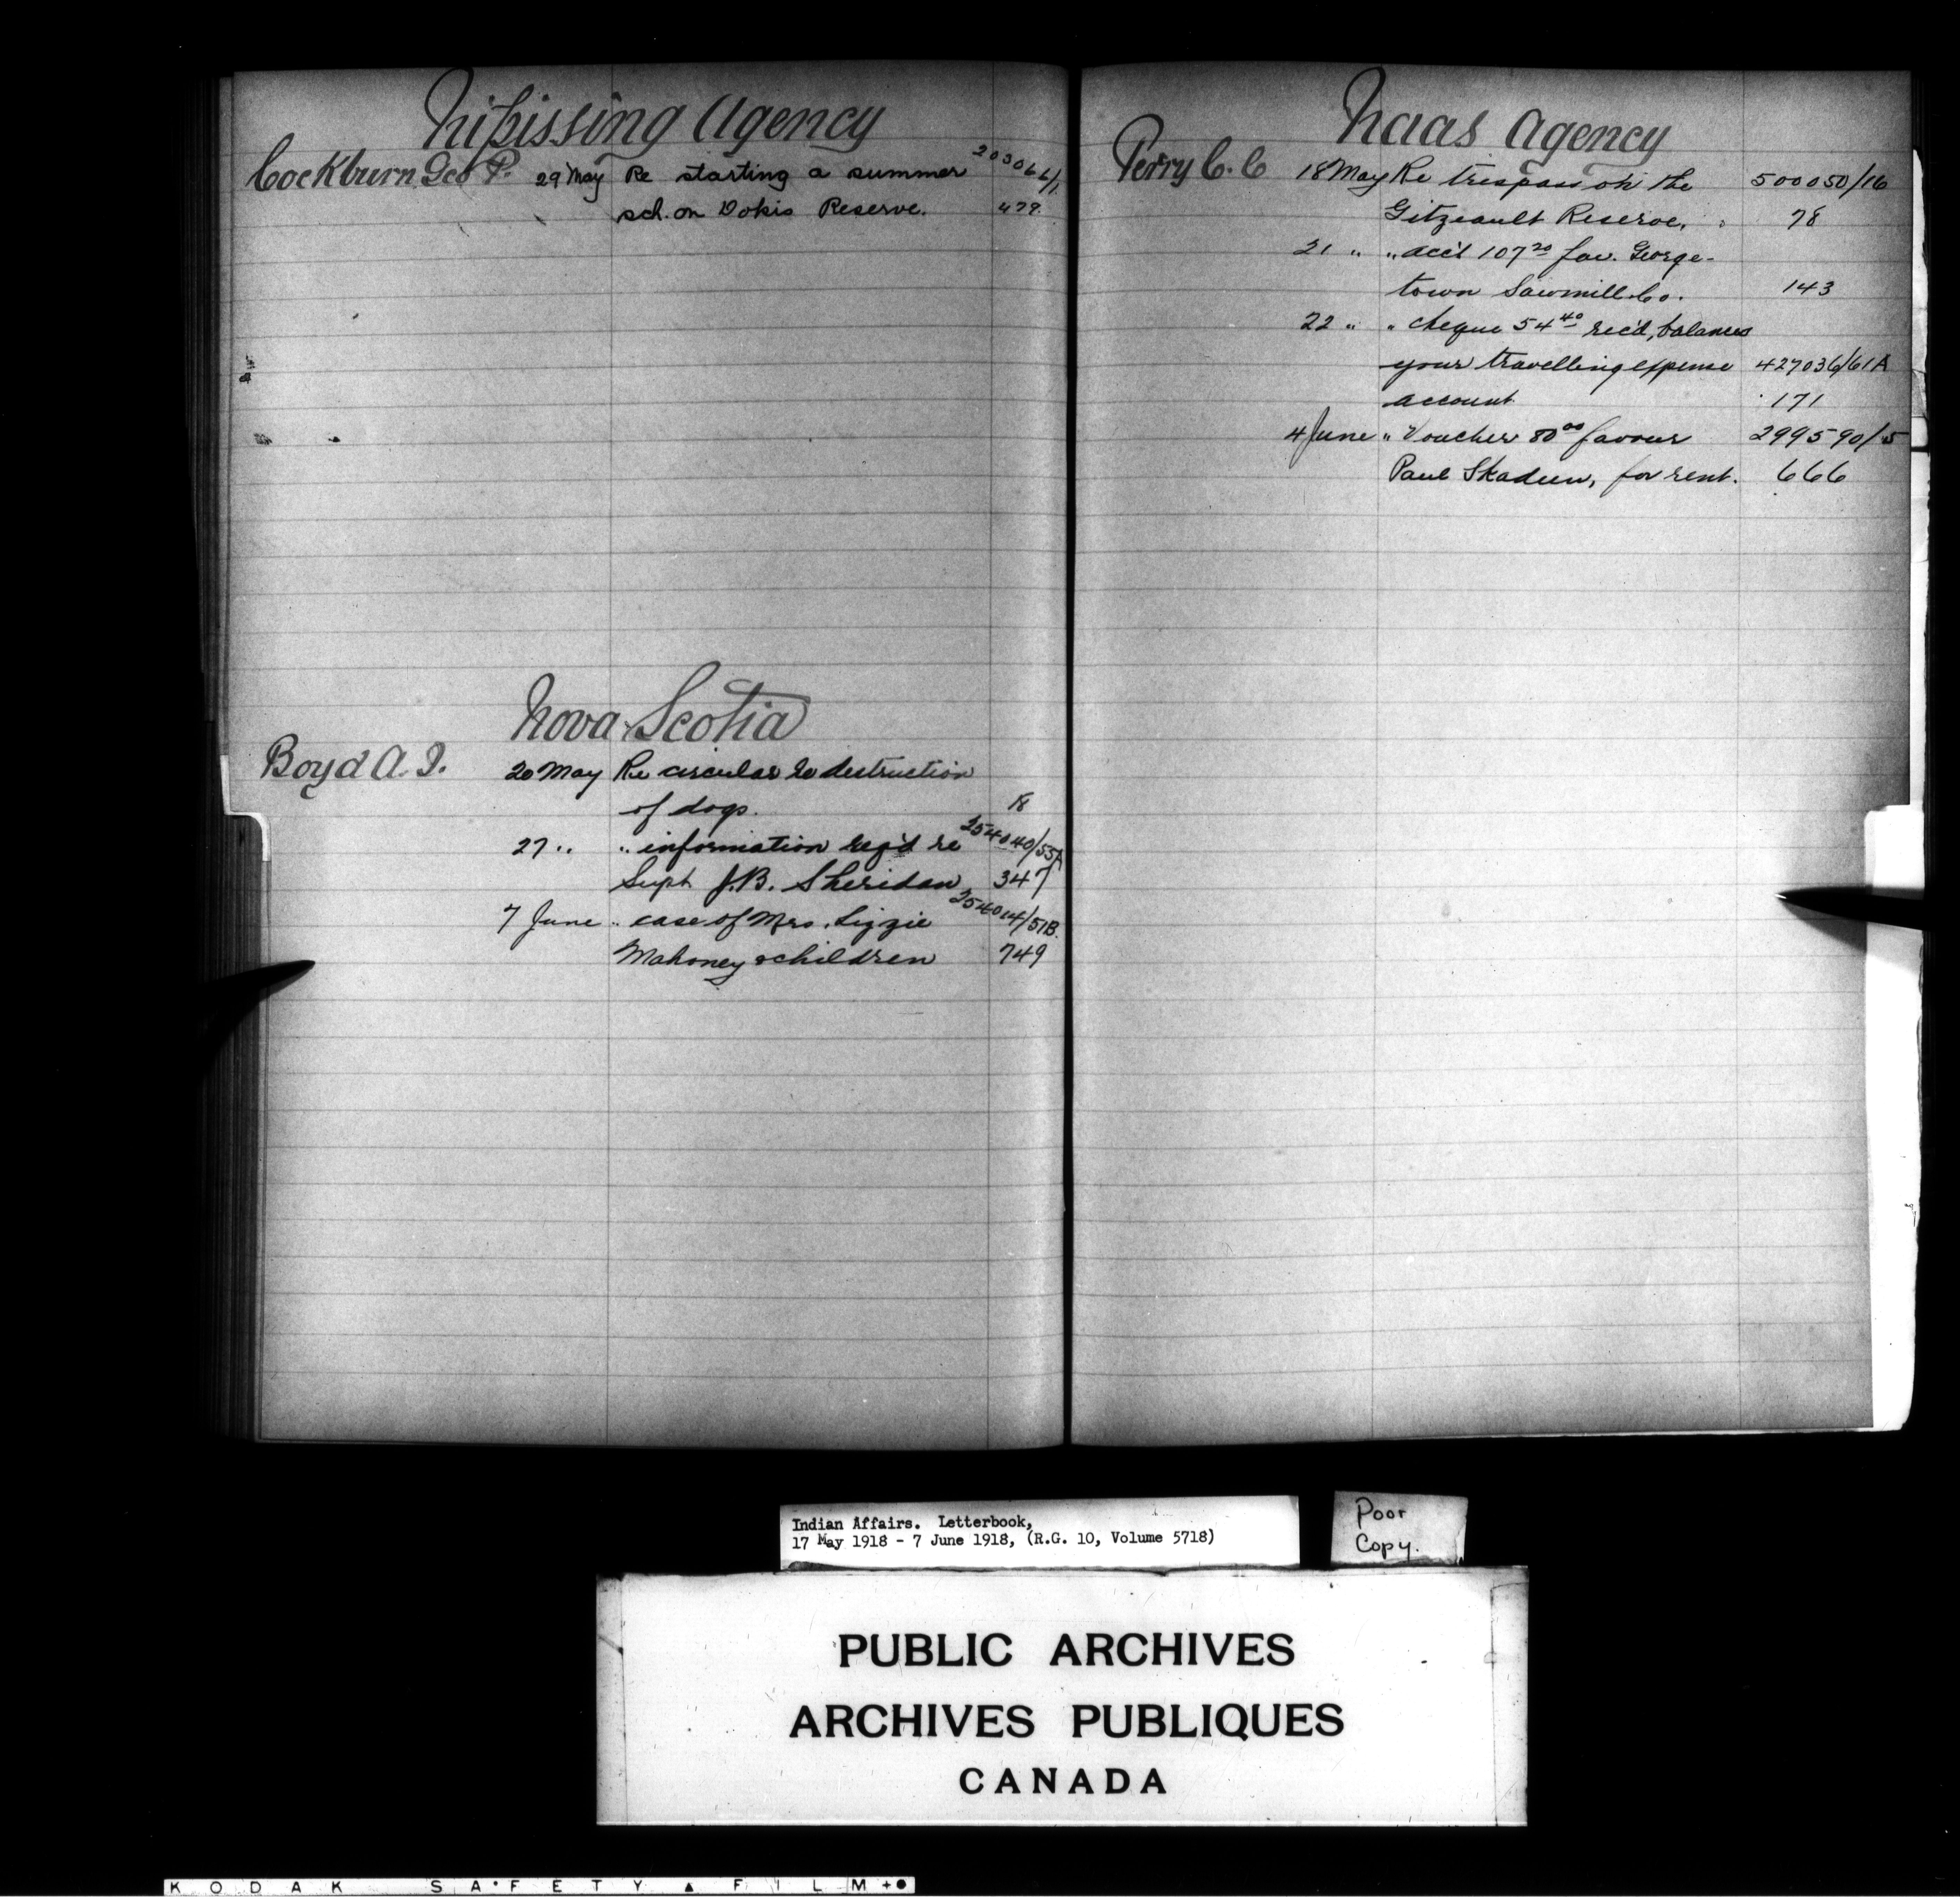 Nipissing Agency
Cockburn Geo P. 29 May Re starting a summer 203066/1
sch. on Dokis Reserve. 479
Nova Scotia
Boyd A. I. 20 May Re circular re destruction
of dogs. 18
27 " " information req'd re 254040/55A
Supt J.B. Sheridan 347
7 June " case of Mrs. Lizzie 254014/51B.
Mahoney & children 749
Naas Agency
Perry C. C 18 May Re trespass on the 500050/16
Gitzeault Reserve, 78
21 " " acc't 107 20 fav. George-
town Sawmill Co. 143
22 " " cheque 54 40 rec'd, balances
your travelling expense 427036/61A
account 171
4 June " Voucher 80 00 favour 299590/5
Paul Skadeen, for rent. 666
Indian Affairs. Letterbook,
17 May 1918 - 7 June 1918, (R.G. 10, Volume 5718)
Poor
Copy.
PUBLIC ARCHIVES
ARCHIVES PUBLIQUES
CANADA
KODAK SAFETY FILM